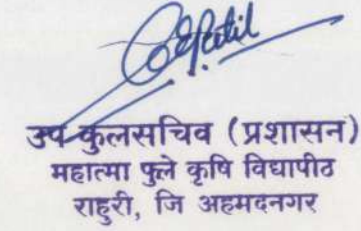 उप-कुलसचिव (प्रशासन)
महात्मा फुले कृषि विद्यापीठ
राहुरी, जि अहमदनगर